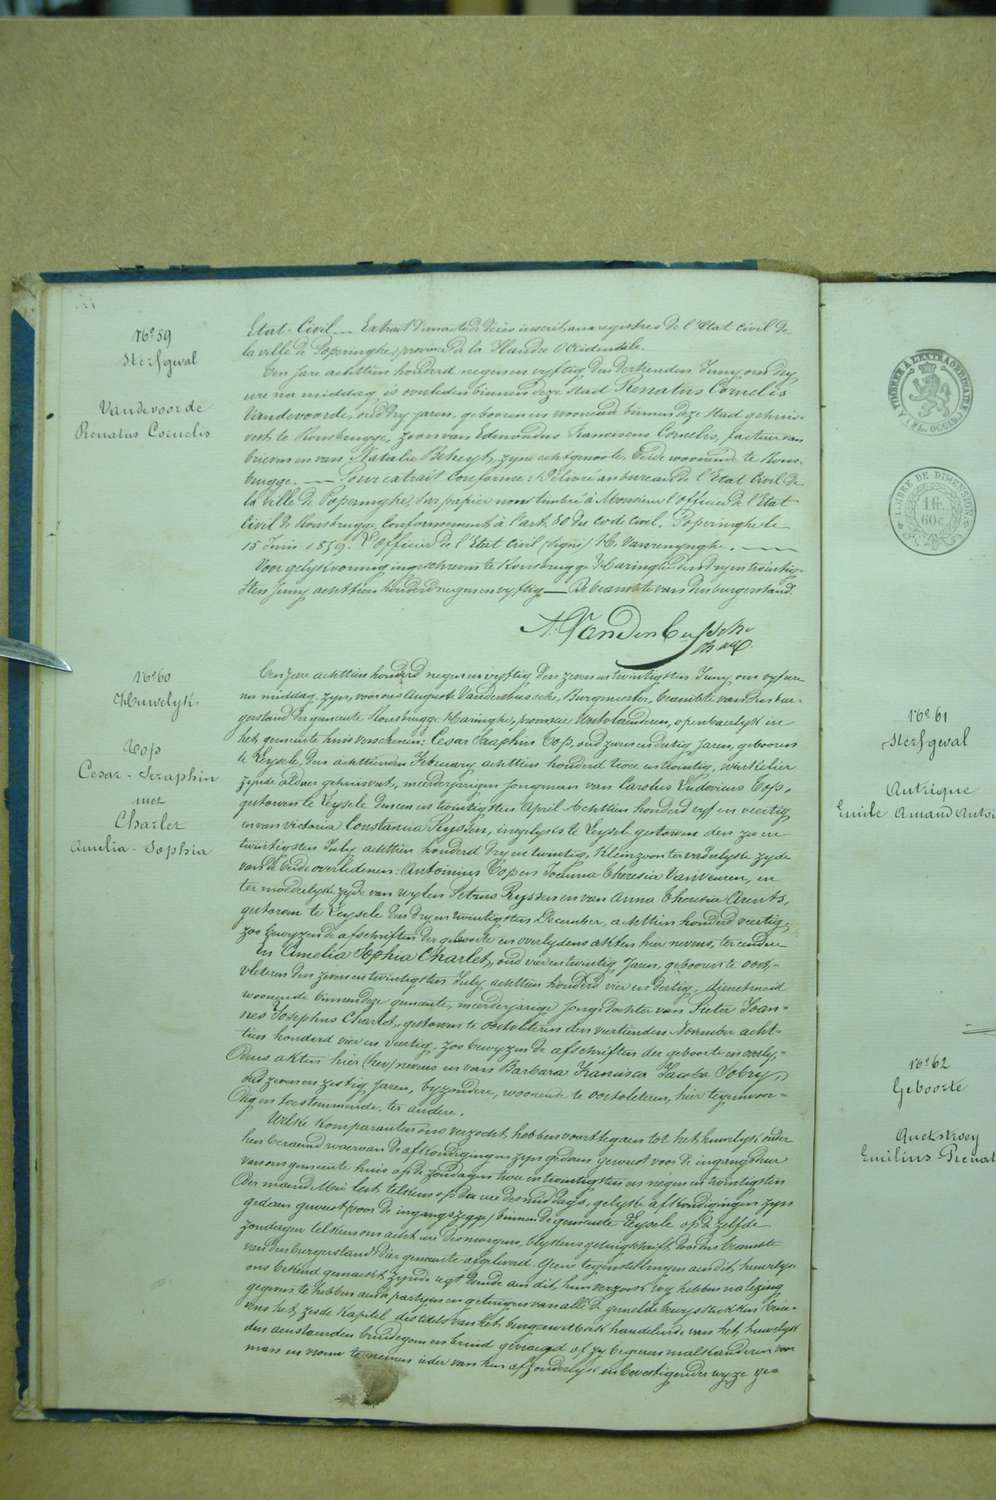 N° 59
Sterfgeval
Vandevoorde
Renatus Cornelis
Etat-Civil — Extrait d'un acte de décès inscrit aux registres de l'Etat civil de
la ville de Poperinghe, province de la Flandre Occidentale.
Een jare achttien honderd negen en vyftig, den dertienden Juny, om dry
ure na middag, is overleden binnen deze stad Renatus Cornelis
Vandevoorde, oud dry jaren, geboren en woonend binnen deze stad gehuis-
vest te Rousbrugge, zoon van Edmondus Franciscus Cornelis, facteur van
brieven en van Natalie Beheyt, zyne echtgenoote, beide woonende te Rous-
brugge. — Pour extrait conforme: Délivré au bureau de l'Etat Civil de
la ville de Poperinghe, sur papier non timbré à Monsieur l'officier de l'Etat
Civil de Rousbrugge, Conformément à l'art. 80 du code civil. Poperinghe le
15 Juin 1859. L'Officier de l'Etat Civil (signé) H. Vanrenynghe. —
Voor gelykvormig ingeschreven te Rousbrugge Haringhe den dry en twintig-
sten Juny achttien honderd negen en vyftig — De beambte van den burgerstand.
A. Vandenbussche
N° 60
Huwelyk.
Top
Cesar-Seraphin
met
Charlet
Amelia-Sophia
Een jare achttien honderd negen en vyftig den zeven en twintigsten Juny, om vyf ure
na middag, zyn, voor ons Auguste Vandenbussche, Burgmeester, beambte van den bur-
gerstand der gemeente Rousbrugge-Haringhe, provincie West-Vlanderen, openbaerlyk in
het gemeente huis verschenen: Cesar Seraphin Top, oud zeven en dertig jaren, geboren
te Leysele, den achttienden February achttien honderd twee en twintig, werktelier
zynde aldaer gehuisvest, meerderjarigen jongman van Carolus Ludovicus Top,
gestorven te Leysele den een en twintigsten April achttien honderd vyf en veertig
en van Victoria Constantia Ryssen, insgelyks te Leysele gestorven den zes en
twintigsten July achttien honderd dry en twintig, kleinzoon ter vaderlyke zyde
van de beide overledenen: Antonius Top en Joanna Theresia Vanveuren, en
ter moederlyke zyde van wylen Petrus Ryssen en van Anna Theresia Arents,
gestorven te Leysele den dry en twintigsten December, achttien honderd veertig,
zoo bewyzen de afschriften der geboorte en overlydens akten hier nevens, ter eendre
En Amelia Sophia Charlet, oud vier en twintig jaren, geboren te Oost-
vleteren den zeven en twintigsten July achttien honderd vier en dertig, dienstmeid
woonende binnen deze gemeente, meerderjarige jonge dochter van Pieter Joan-
nes Josephus Charlet, gestorven te Oostvleteren den veertienden November acht-
tien honderd vier en veertig, zoo bewyzen de afschriften der geboorte en overly-
dens akten hier (hier) nevens en van Barbara Francisca Jacoba Cobry,
oud zeven en zestig jaren, byzondere, woonende te Oostvleteren, hier tegenwoor-
dig en toestemmende, ter andere.
Welke komparanten ons verzocht hebben voort te gaen tot het huwelyk onder
hen beraemd waervan de afkondigingen zyn gedaen geweest voor de ingangsdeur
van ons gemeente huis op de zondagen twee en twintigsten en negen en twintigsten
der maend Mei lest, telkens op den ure des middags, gelyke afkondigingen zyn
gedaen geweest (voor de ingangs zegge) binnen de gemeente Leysele op de zelfde
zondagen telkens om acht ure des morgens, blykens getuigschrift door den beambte
van den burgerstand der gemeente afgeleverd. Geene tegenstellingen aen dit huwelyk
ons bekend gemaekt zynde regt doende aen dit, hun verzoek, wy hebben na lezing
gegeven te hebben aen de partyen en getuigen van alle de gemelde bewysstukken
van het zesde kapitel des titels van het burgerwetboek handelende van het huwelyk
den aenstaenden bruidegom en bruid gevraegd of zy begeren malkanderen voor
man en vrouw te nemen ieder van hen afzonderlyk en bevestigender wyze ge-
TIMBRE A L'EXTRAORDINAIRE
(Fl. OCCID.)
TIMBRE DE DIMENSION
1 fr.
60 c.
N° 61
Sterfgeval
Autrique
Emile Amand Anto
N° 62
Geboorte
Emilius-Renat